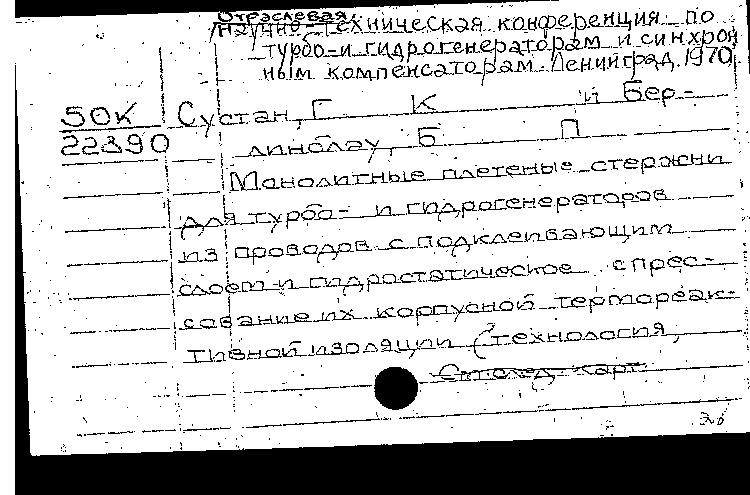 Отраслевая
научно-техническая конференция по
турбо- и гидрогенераторам и синхрон
ным компенсаторам. Ленинград, 1970.
50К Сустан, Г К и Бер-
22390 линблау, Б П
Монолитные плетеные стержни
для турбо- и гидрогенераторов
из проводов с подклеивающим
слоем и гидростатическое спрес-
сование их корпусной термореак-
тивной изоляции (технология,
См. след. карт.